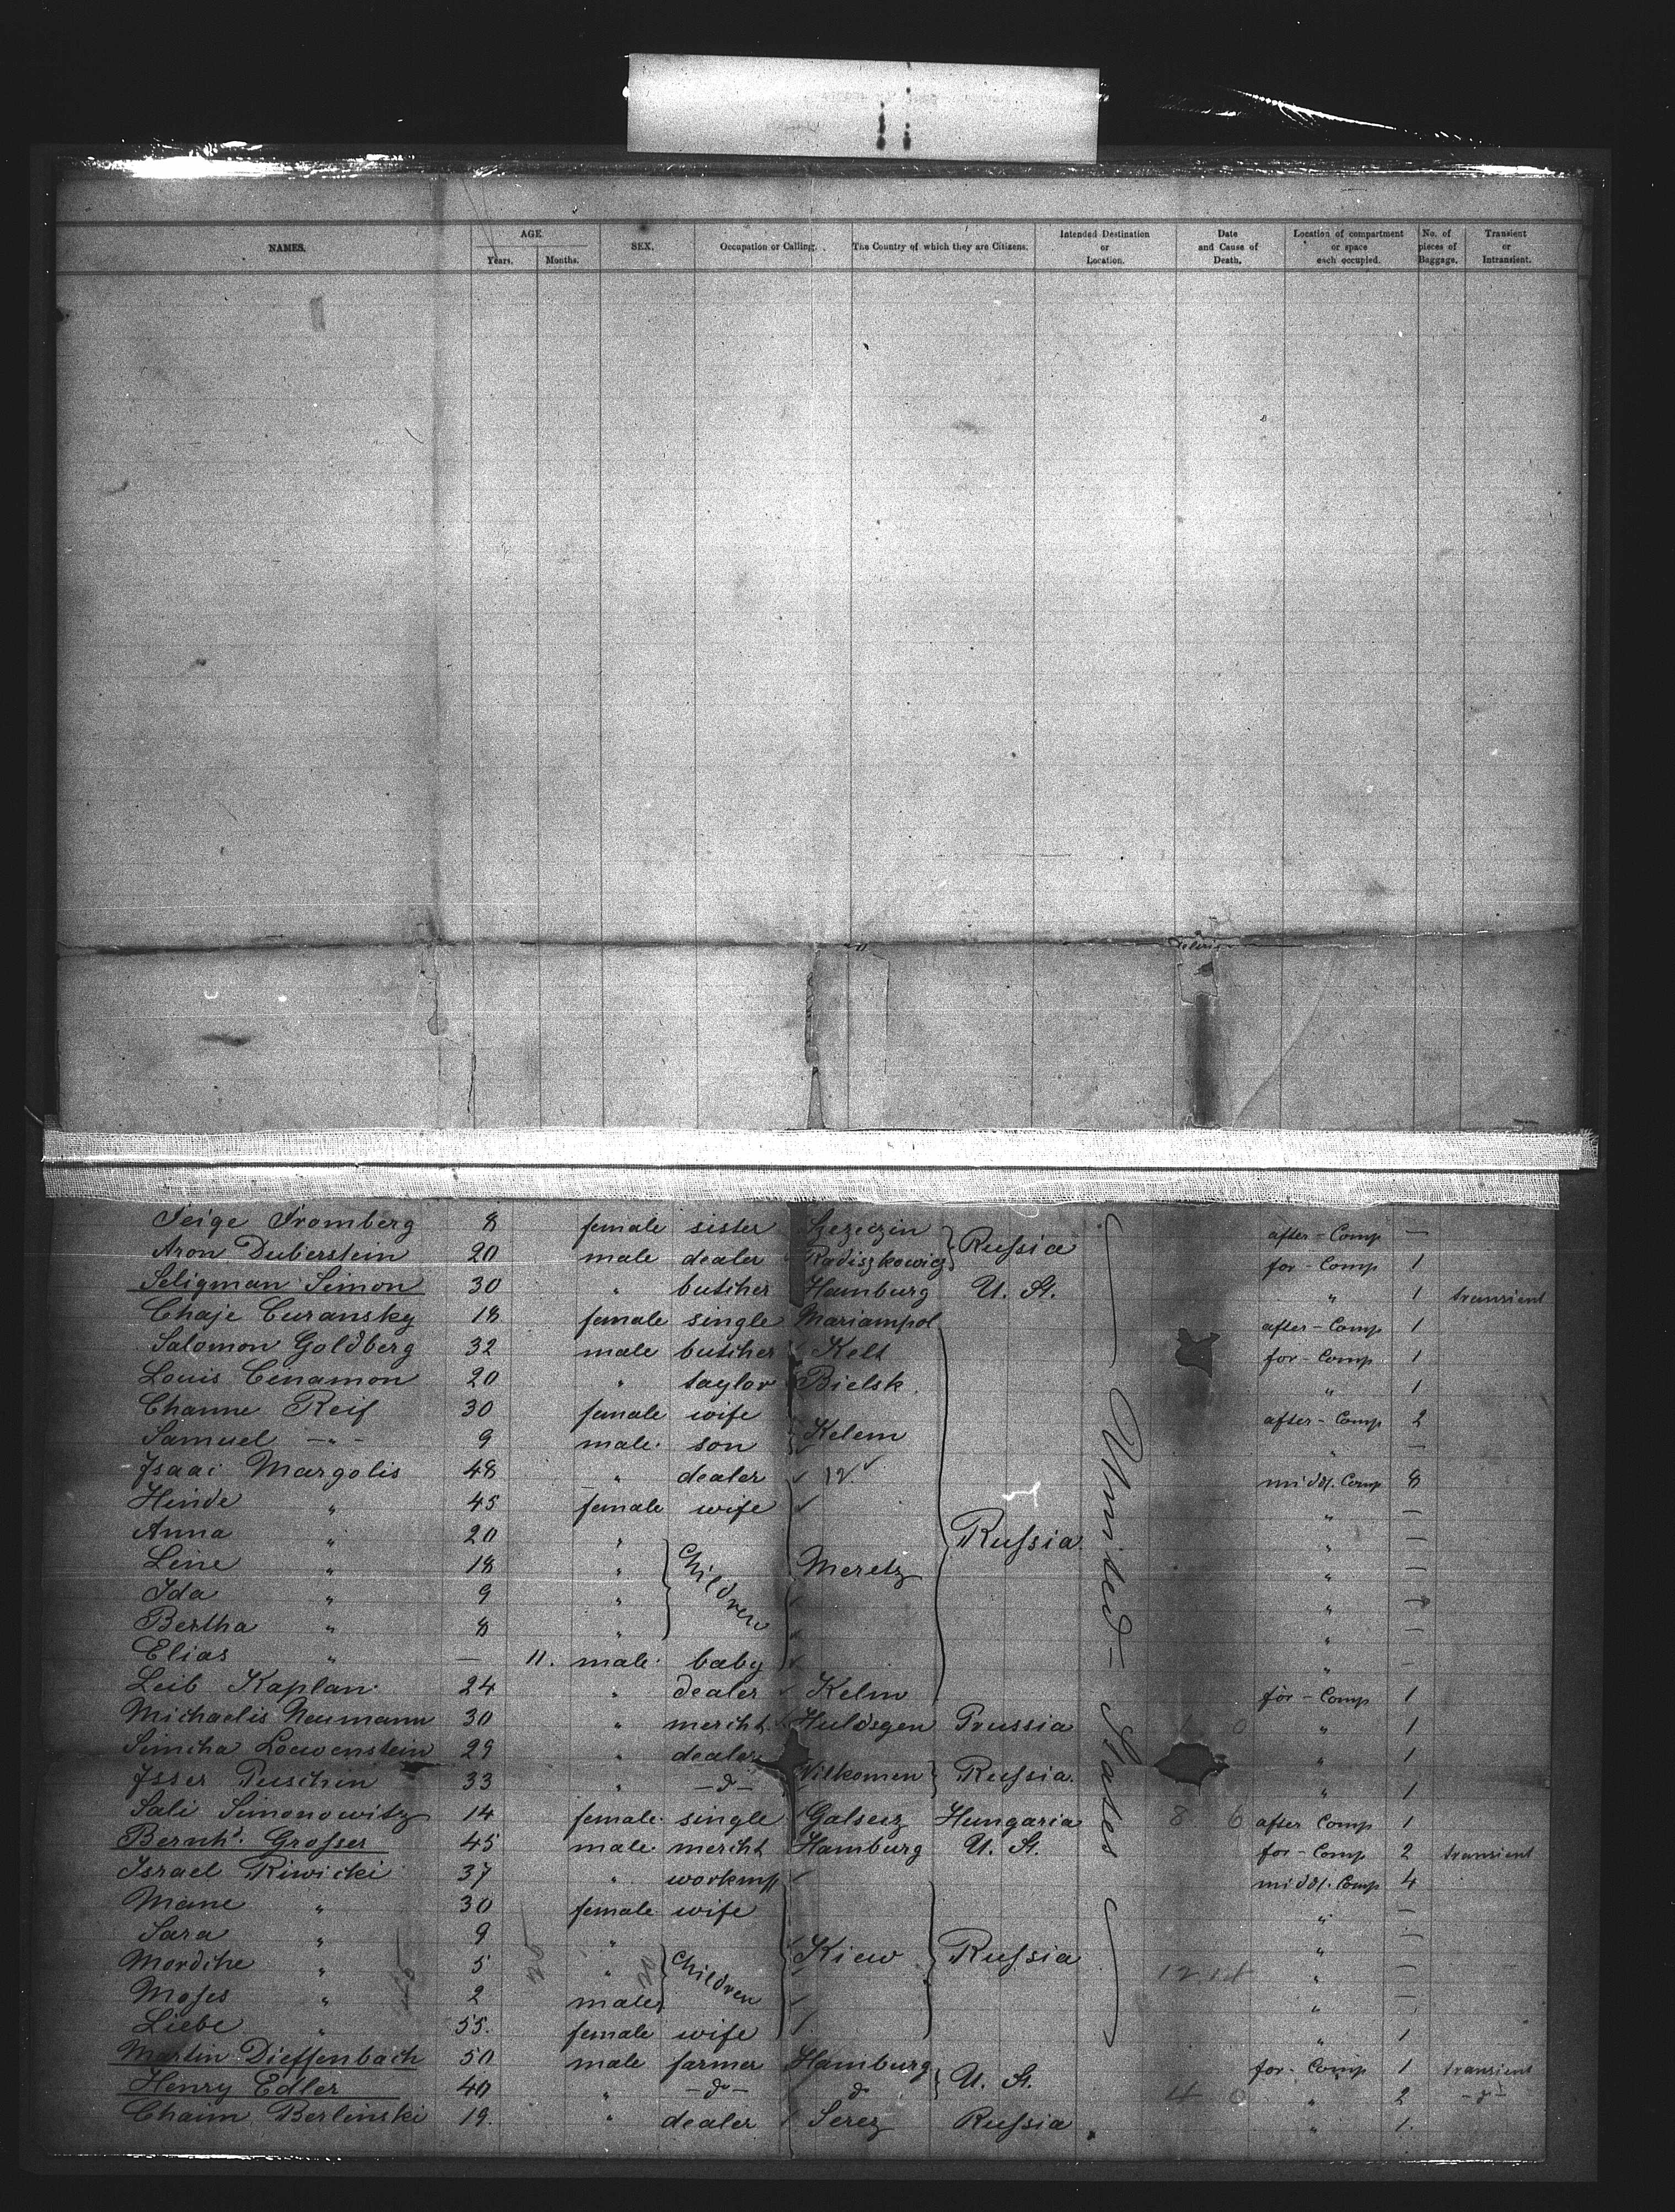 NAMES. AGE. Years. Months. SEX. Occupation or Calling. The Country of which they are Citizens. Intended Destination or Location. Date and Cause of Death. Location of compartment or space each occupied. No. of pieces of Baggage. Transient or Intransient.
Feige Fromberg 8 female sister Szczezin Russia after-Comp —
Aron Duberstein 20 male dealer Radiszkowicz for-Comp 1
Seligman Simon 30 " butcher Hamburg U. St. " 1 transient
Chaje Curansky 18 female single Mariampol after-Comp 1
Salomon Goldberg 32 male butcher Kelt for-Comp 1
Louis Cinamon 20 " taylor Bielsk " 1
Channe Reif 30 female wife Kelem after-Comp 2
Samuel -"- 9 male son " —
Isaac Margolis 48 " dealer middl. Comp 8
Hinde " 45 female wife " —
Anna " 20 " Children Russia " —
Line " 18 " Meretz " —
Ida " 9 " " —
Bertha " 8 " " —
Elias " — 11. male baby " —
Leib Kaplan 24 " dealer Kelm for-Comp 1
Michaelis Neumann 30 " mercht. Huldsgen Prussia " 1
Simcha Loewenstein 29 " dealer Wilkomen Russia " 1
Isser Puschin 33 " -d- " 1
Sali Simonowitz 14 female single Galsecz Hungaria 8 6 after Comp 1
Bernhd. Grosser 45 male mercht Hamburg U. St. for-Comp 2 transient
Israel Riwicki 37 " workm middl. Comp 4
Mane " 30 female wife " —
Sara " 9 " Children Kiew Russia " —
Mordche " 5 " " —
Moses " 2 male " —
Liebe " 55. female wife " 1
Martin Dieffenbach 50 male farmer Hamburg U. St. for-Comp 1 transient
Henry Edler 40 " -do- do " 2 -d-
Chaim Berlinski 19. " dealer Serez Russia " 1.
United States